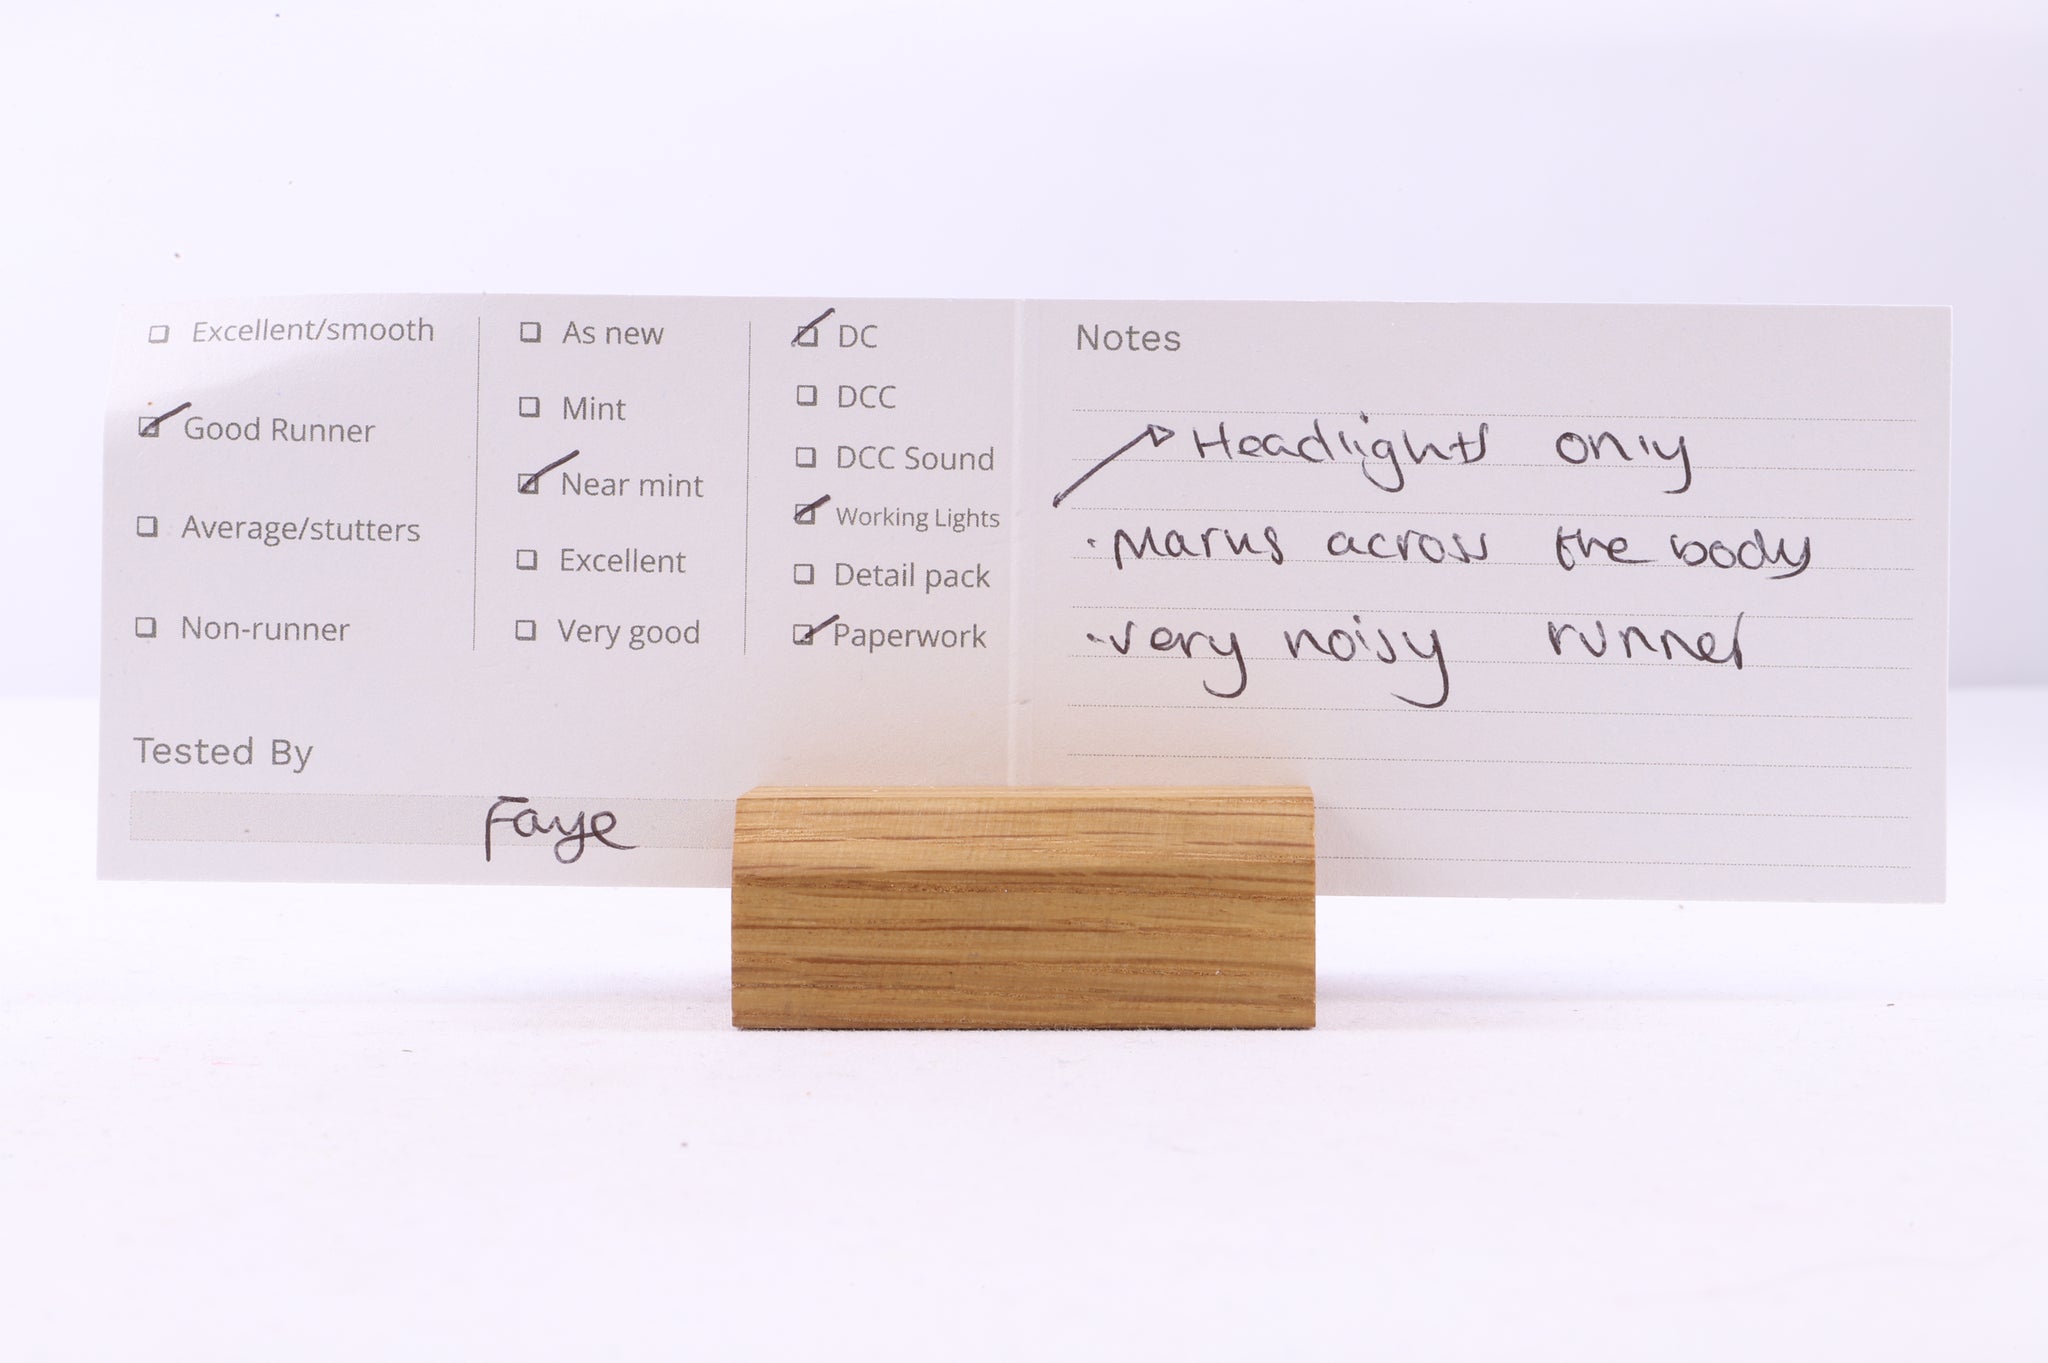 Excellent/smooth
Good Runner
Average/stutters
Non-runner
As new
Mint
Near mint
Excellent
Very good
DC
DCC
DCC Sound
Working Lights
Detail pack
Paperwork
Tested By
Faye
Notes
Headlights only
· Marks across the body
· very noisy runner